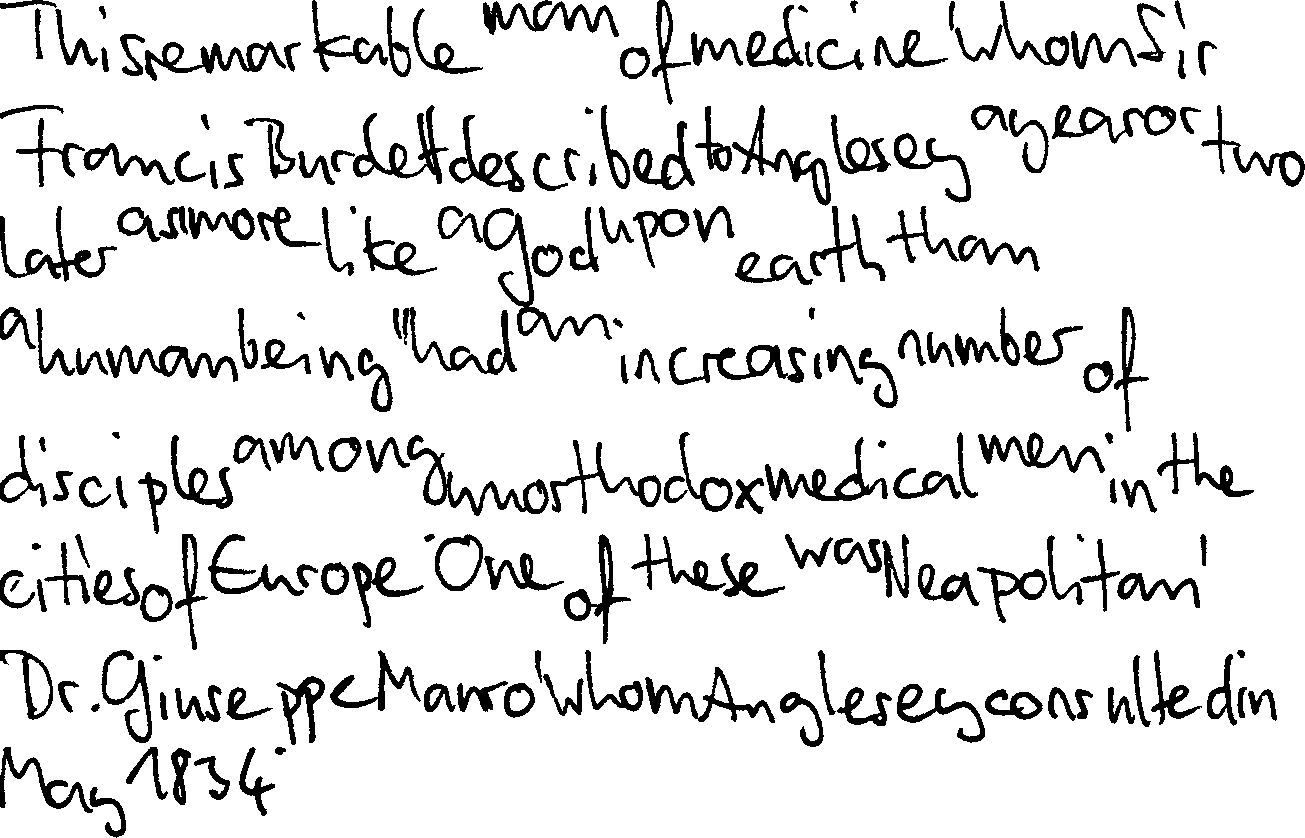 This remarkable man of medicine, whom Sir
Francis Burdett described to Anglesey a year or two
later as "more like a god upon earth than
a human being", had an increasing number of
disciples among unorthodox medical men in the
cities of Europe. One of these was Neapolitan,
Dr. Giuseppe Mauro, whom Anglesey consulted in
May 1834.